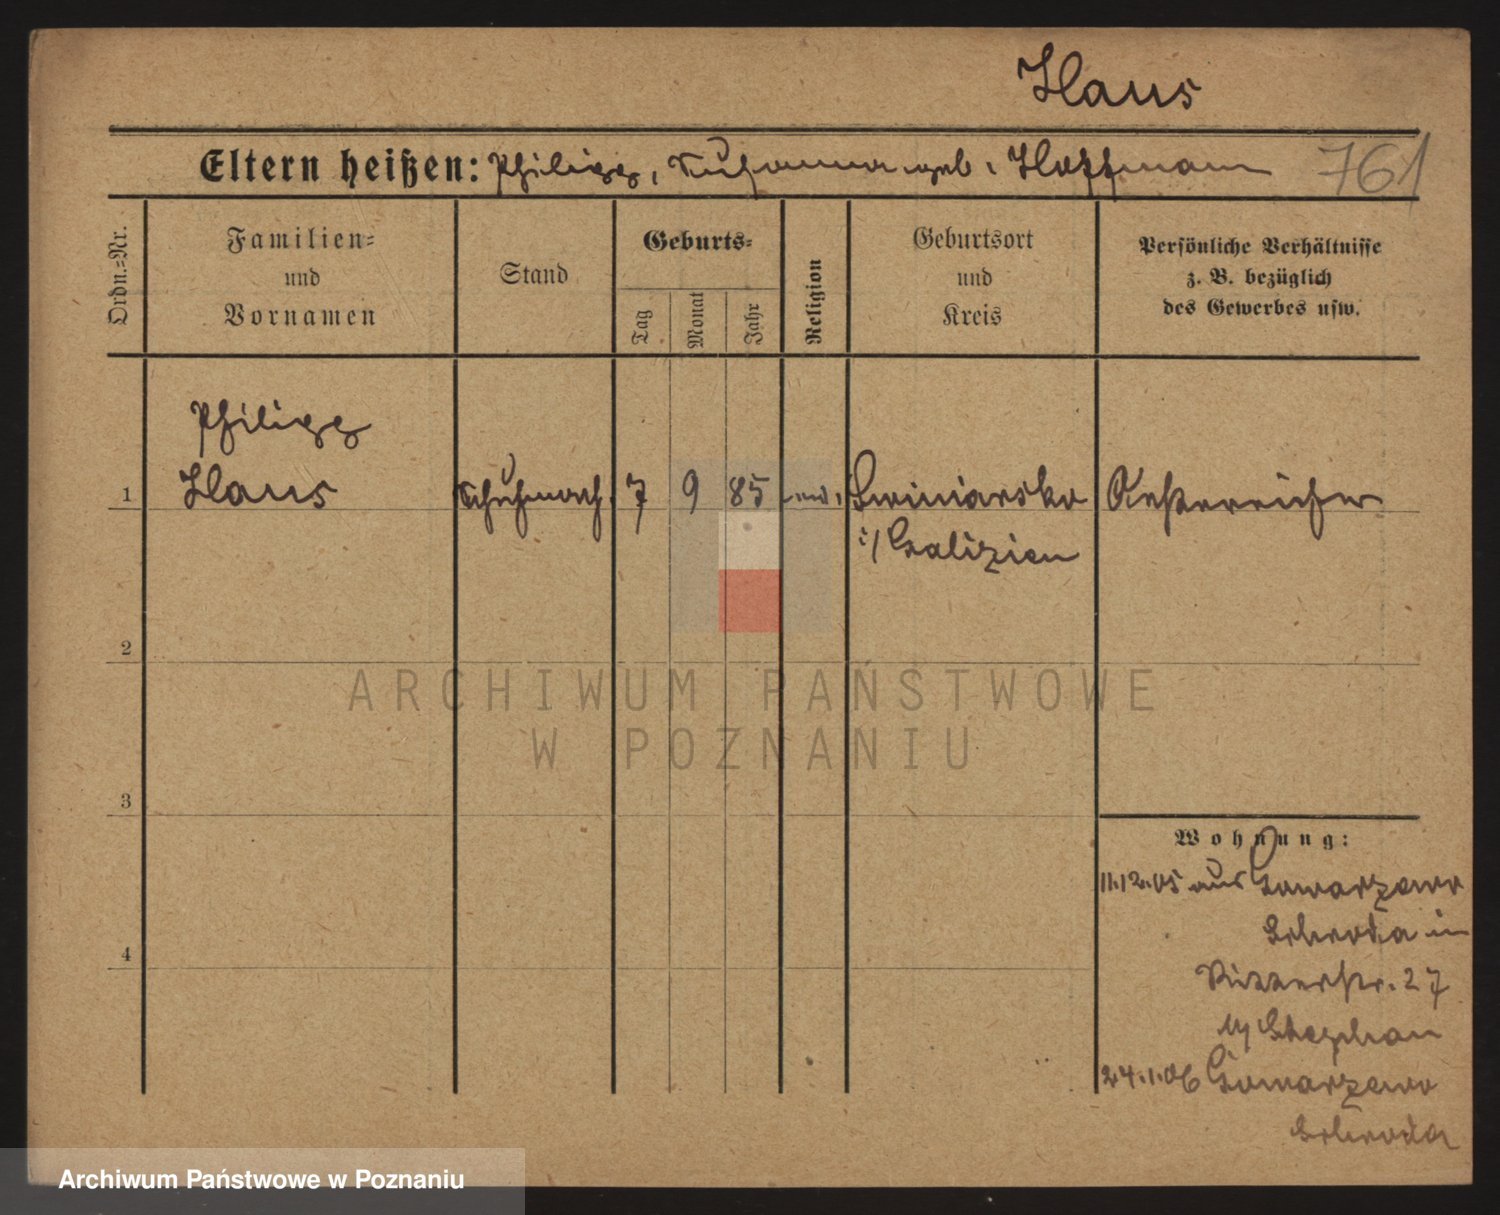 Haus
Eltern heißen: Philipp, Susanna geb. Hoffmann 761
Ordn.-Nr.
Familien-
und
Vornamen
Stand
Geburts-
Tag
Monat
Jahr
Religion
Geburtsort
und
Kreis
Persönliche Verhältnisse
z. B. bezüglich
des Gewerbes usw.
Philipp
1 Haus Schuhmach. 7 9 85 Österreicher
i/ Galizien
2
3
4
Wohnung:
11.12.05 aus Gowarzewo
Schroda in
Ritterstr. 27
by Stephan
24.1.06 Gowarzewo
Schroda
ARCHIWUM PAŃSTWOWE
W POZNANIU
Archiwum Państwowe w Poznaniu